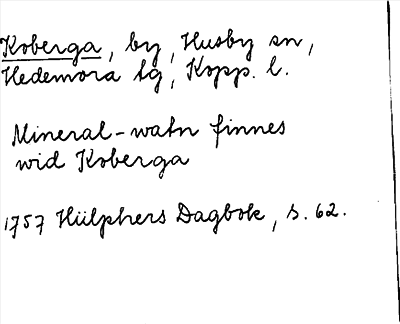 Koberga, by, Husby sn,
Hedemora tg, Kopp. l.
Mineral-watn finnes
wid Koberga
1757 Hülphers Dagbok, s. 62.